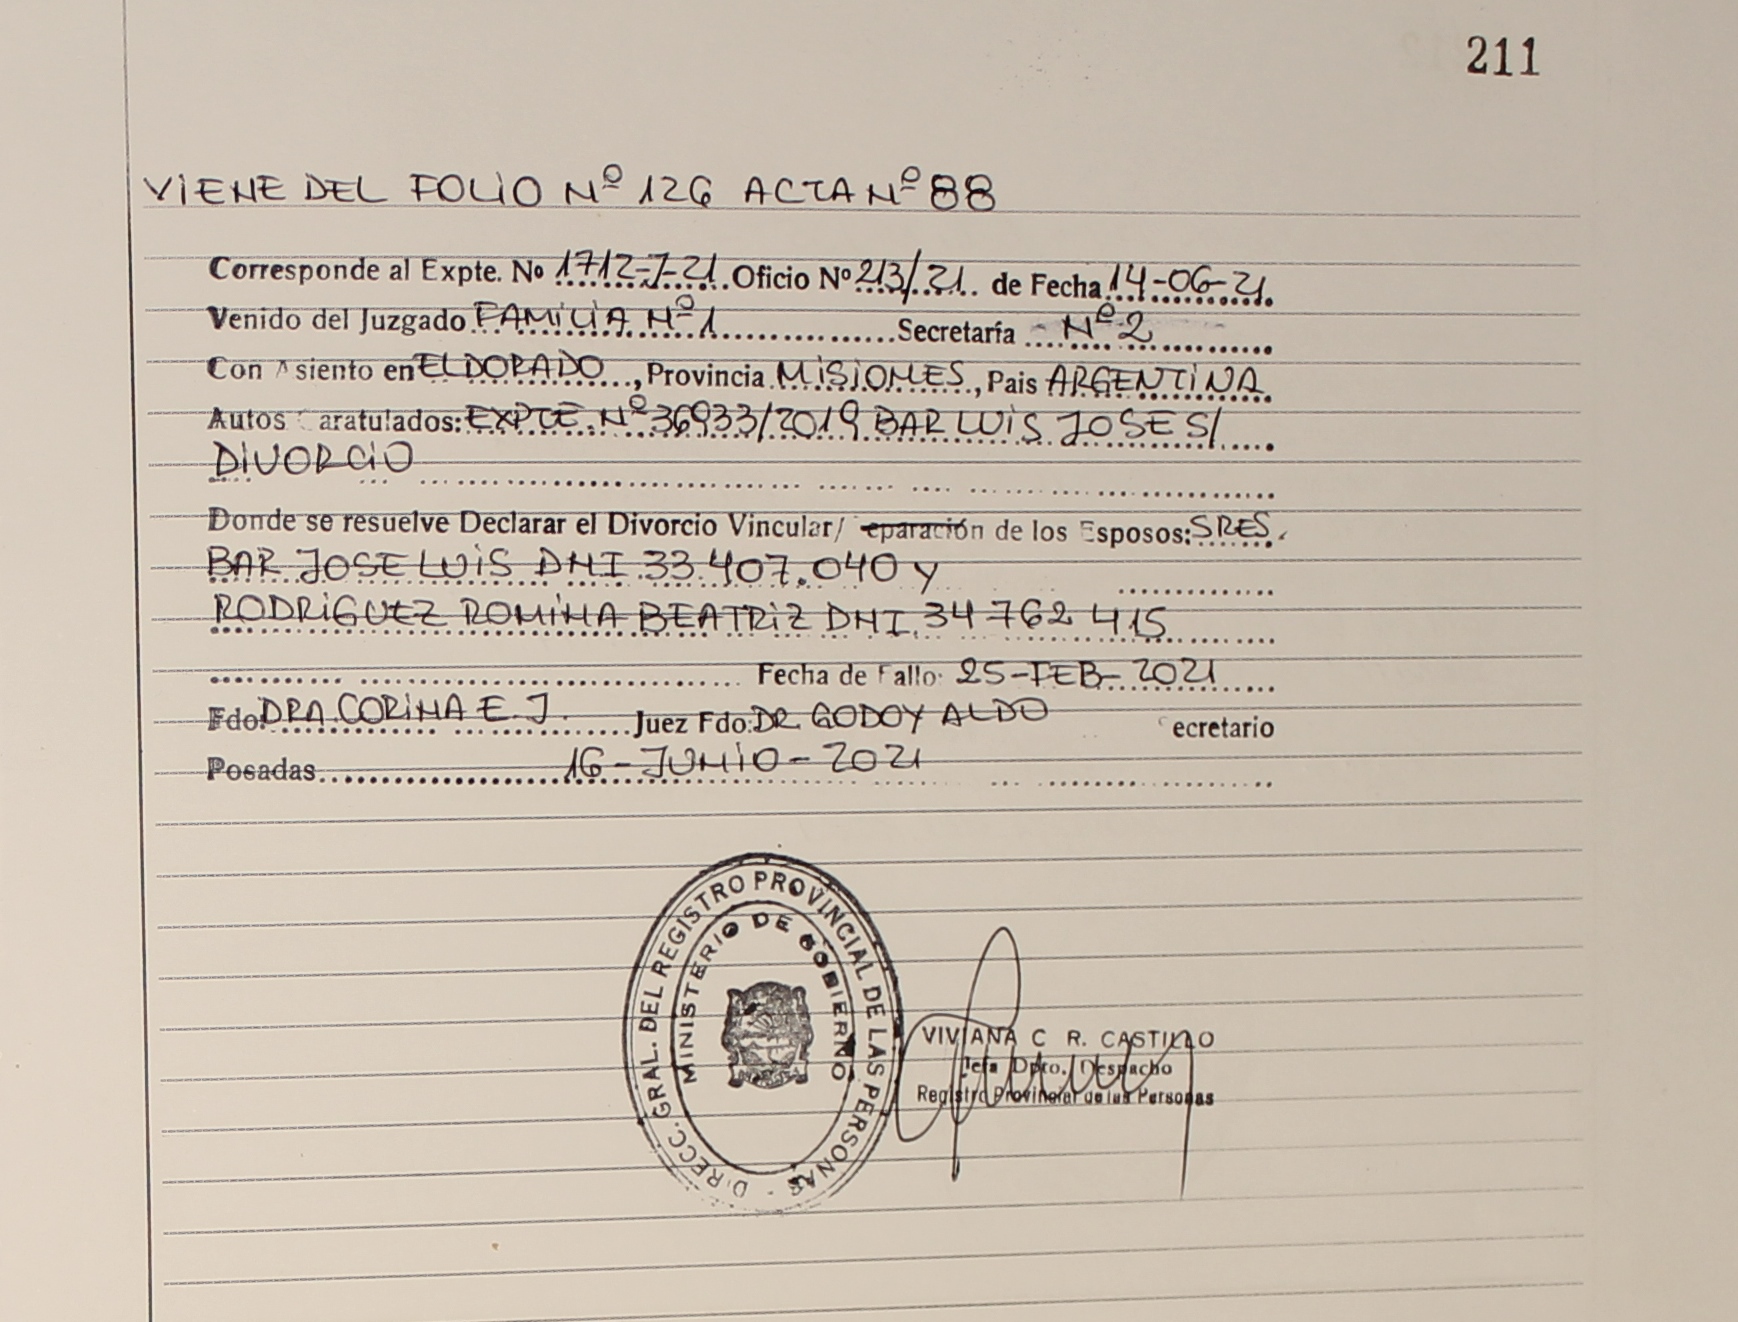 211
VIENE DEL FOLIO Nº 126 ACTA Nº 88
Corresponde al Expte. Nº 1712-J-21 Oficio Nº 213/21 de Fecha 14-06-21
Venido del Juzgado FAMILIA Nº 1 Secretaría Nº 2
Con Asiento en ELDORADO, Provincia MISIONES, Pais ARGENTINA
Autos Caratulados: EXPTE. Nº 36933/2019 BAR LUIS JOSE S/
DIVORCIO
Donde se resuelve Declarar el Divorcio Vincular/ eparación de los Esposos: SRES.
BAR JOSE LUIS DNI 33.407.040 y
RODRIGUEZ ROMINA BEATRIZ DNI 34 762 415
Fecha de Fallo: 25-FEB-2021
Fdo: DRA. CORINA E. J. Juez Fdo: DR. GODOY ALDO ecretario
Posadas 16-JUNIO-2021
DIRECC. GRAL. DEL REGISTRO PROVINCIAL DE LAS PERSONAS -
MINISTERIO DE GOBIERNO
VIVIANA C R. CASTILLO
Jefa Dpto. Despacho
Registro Provincial de las Personas